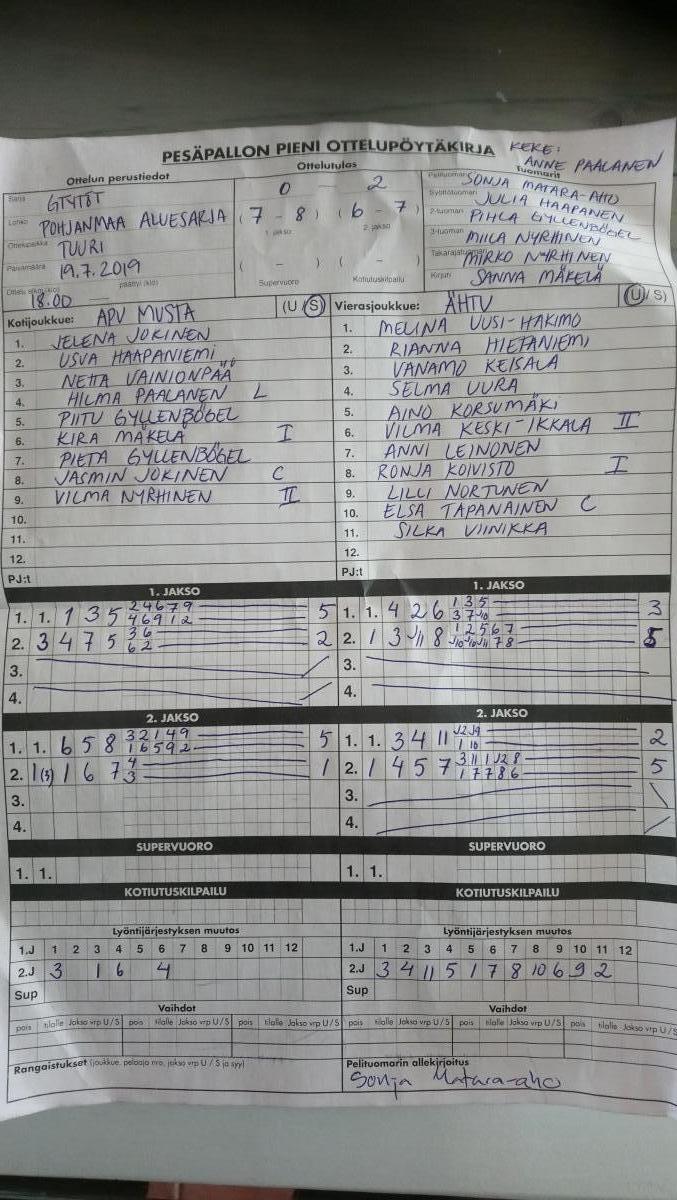 PESÄPALLON PIENI OTTELUPÖYTÄKIRJA
KEKE:
ANNE PAALANEN
Ottelun perustiedot
Ottelutulos
Tuomarit
Sarja GTYTÖT
Lohko POHJANMAA ALUESARJA
Ottelupaikka TUURI
Päivämäärä 19.7.2019
Ottelu alkoi (klo) 18.00 — päättyi (klo)
0 — 2
(7 - 8) (6 - 7)
1. jakso 2. jakso
( - ) ( - )
Supervuoro Kotiutuskilpailu
Pelituomari SONJA MATARA-AHO
Syöttötuomari JULIA HAAPANEN
2-tuomari PIHLA GYLLENBÖGEL
3-tuomari MIILA NYRHINEN
Takarajatuomari MIRKO NYRHINEN
Kirjuri SANNA MÄKELÄ
Kotijoukkue: APV MUSTA (U / S)
1. JELENA JOKINEN
2. USVA HAAPANIEMI
3. NETTA VAINIONPÄÄ
4. HILMA PAALANEN L
5. PIITU GYLLENBÖGEL
6. KIRA MÄKELÄ I
7. PIETA GYLLENBÖGEL
8. JASMIN JOKINEN C
9. VILMA NYRHINEN II
10.
11.
12.
PJ:t
Vierasjoukkue: ÄHTU (U / S)
1. MELINA UUSI-HAKIMO
2. RIANNA HIETANIEMI
3. VANAMO KEISALA
4. SELMA UURA
5. AINO KORSUMÄKI
6. VILMA KESKI-IKKALA II
7. ANNI LEINONEN
8. RONJA KOIVISTO I
9. LILLI NORTUNEN
10. ELSA TAPANAINEN C
11. SILKA VIINIKKA
12.
PJ:t
1. JAKSO
1. 1. 1 3 5 2 4 6 7 9 5
4 6 9 1 2
2. 3 4 7 5 3 6 2
6 2
3.
4.
1. JAKSO
1. 1. 4 2 6 1 3 5 3
3 7 10
2. 1 3 11 8 1 2 5 6 7 5
10 10 11 7 8
3.
4.
2. JAKSO
1. 1. 6 5 8 3 2 1 4 9 5
1 6 5 9 2
2. 1(3) 1 6 7 4 1
3
3.
4.
2. JAKSO
1. 1. 3 4 11 2
1 10
2. 1 4 5 7 5
1 7 7 8 6
3.
4.
SUPERVUORO
1. 1.
SUPERVUORO
1. 1.
KOTIUTUSKILPAILU
KOTIUTUSKILPAILU
Lyöntijärjestyksen muutos
1.J 1 2 3 4 5 6 7 8 9 10 11 12
2.J 3 1 6 4
Sup
Lyöntijärjestyksen muutos
1.J 1 2 3 4 5 6 7 8 9 10 11 12
2.J 3 4 11 5 1 7 8 10 6 9 2
Sup
Vaihdot
pois tilalle Jakso vrp U / S pois tilalle Jakso vrp U / S pois tilalle Jakso vrp U / S
Vaihdot
pois tilalle Jakso vrp U / S pois tilalle Jakso vrp U / S pois tilalle Jakso vrp U / S
Rangaistukset (joukkue, pelaaja nro, jakso vrp U / S ja syy)
Pelituomarin allekirjoitus
Sonja Matara-aho